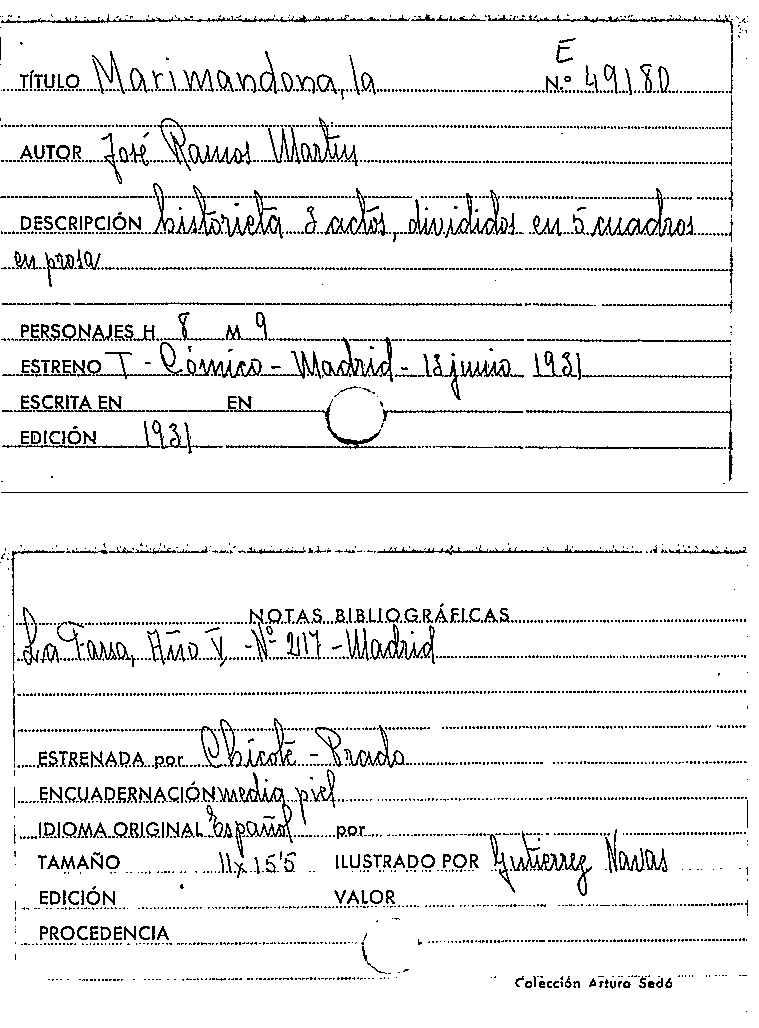 E
TÍTULO Marimandona, la N.º 49180
AUTOR José Ramos Martín
DESCRIPCIÓN historieta 3 actos, divididos en 5 cuadros
en prosa
PERSONAJES H 8 M 9
ESTRENO T - Cómico - Madrid - 13 junio 1931
ESCRITA EN EN
EDICIÓN 1931
NOTAS BIBLIOGRÁFICAS
La Farsa, Año V, - Nº 217 - Madrid
ESTRENADA por Chicote - Prado
ENCUADERNACIÓN media piel
IDIOMA ORIGINAL Español por
TAMAÑO 11 x 15'5 ILUSTRADO POR Gutierrez Navas
EDICIÓN VALOR
PROCEDENCIA
Colección Arturo Sedó